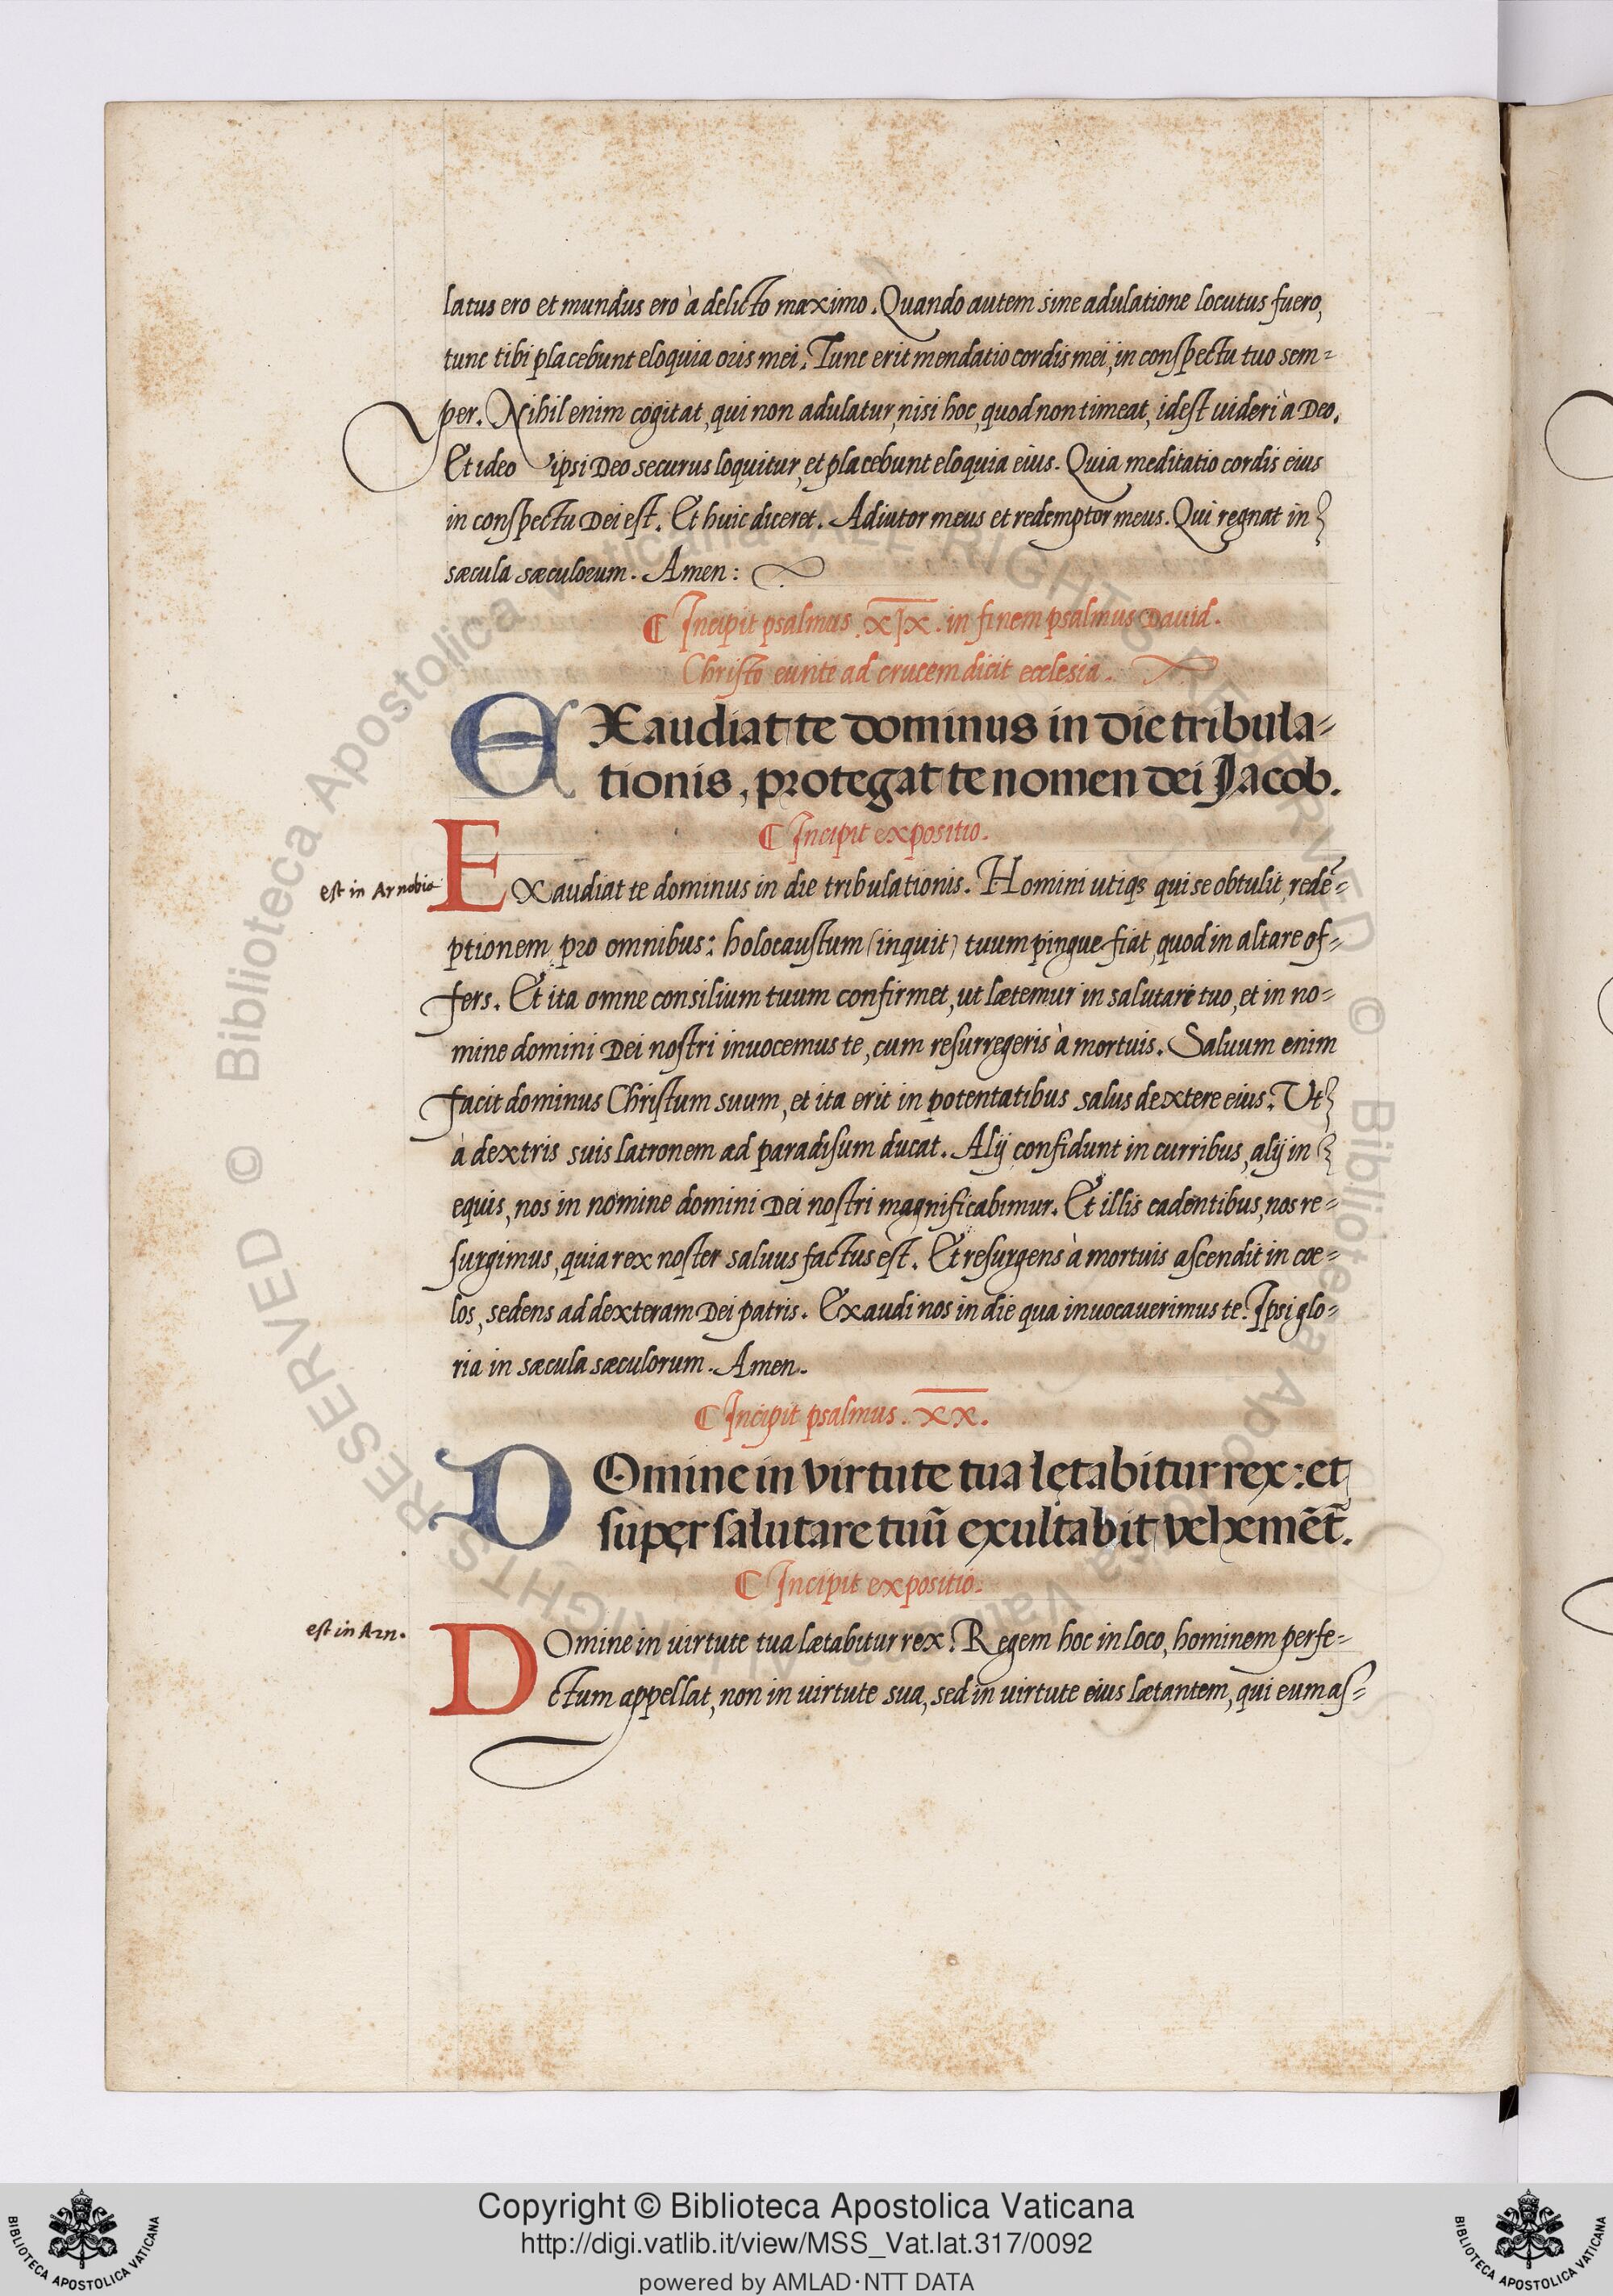 latus ero et mundus ero à delicto maximo. Quando autem sine adulatione locutus fuero,
tunc tibi placebunt eloquia oris mei. Tunc erit mendatio cordis mei, in conspectu tuo sem=
per. Nihil enim cogitat, qui non adulatur, nisi hoc, quod non timeat, idest uideri à Deo.
Et ideo ipsi Deo securus loquitur, et placebunt eloquia eius. Quia meditatio cordis eius
in conspectu Dei est. Et huic diceret. Adiutor meus et redemptor meus. Qui regnat in
sæcula sæculorum. Amen:
Incipit psalmus .XIX. in finem psalmus Dauid.
Christo eunte ad crucem dicit ecclesia.
EXaudiat te dominus in die tribula=
tionis, protegat te nomen dei Jacob.
Incipit expositio.
est in Arnobio
EXaudiat te dominus in die tribulationis. Homini utiqs qui se obtulit, redē=
ptionem pro omnibus: holocaustum (inquit) tuum pingue fiat, quod in altare of=
fers. Et ita omne consilium tuum confirmet, ut lætemur in salutare tuo, et in no=
mine domini Dei nostri inuocemus te, cum resurregeris à mortuis. Saluum enim
facit dominus Christum suum, et ita erit in potentatibus salus dextere eius. Ut
à dextris suis latronem ad paradisum ducat. Alij confidunt in curribus, alij in
equis, nos in nomine domini Dei nostri magnificabimur. Et illis cadentibus, nos re=
surgimus, quia rex noster saluus factus est. Et resurgens à mortuis ascendit in cœ=
los, sedens ad dexteram Dei patris. Exaudi nos in die qua inuocauerimus te. Ipsi glo=
ria in sæcula sæculorum. Amen.
Incipit psalmus .XX.
DOmine in virtute tua lętabitur rex: et
super salutare tuū exultabit vehemēt̄.
Incipit expositio.
est in Arn.
DOmine in uirtute tua lætabitur rex. Regem hoc in loco, hominem perfe=
ctum appellat, non in uirtute sua, sed in uirtute eius lætantem, qui eum as=
© Biblioteca Apostolica Vaticana ALL RIGHTS RESERVED © Biblioteca Apostolica Vaticana ALL RIGHTS RESERVED
BIBLIOTECA APOSTOLICA VATICANA
Copyright © Biblioteca Apostolica Vaticana
http://digi.vatlib.it/view/MSS_Vat.lat.317/0092
powered by AMLAD·NTT DATA
BIBLIOTECA APOSTOLICA VATICANA